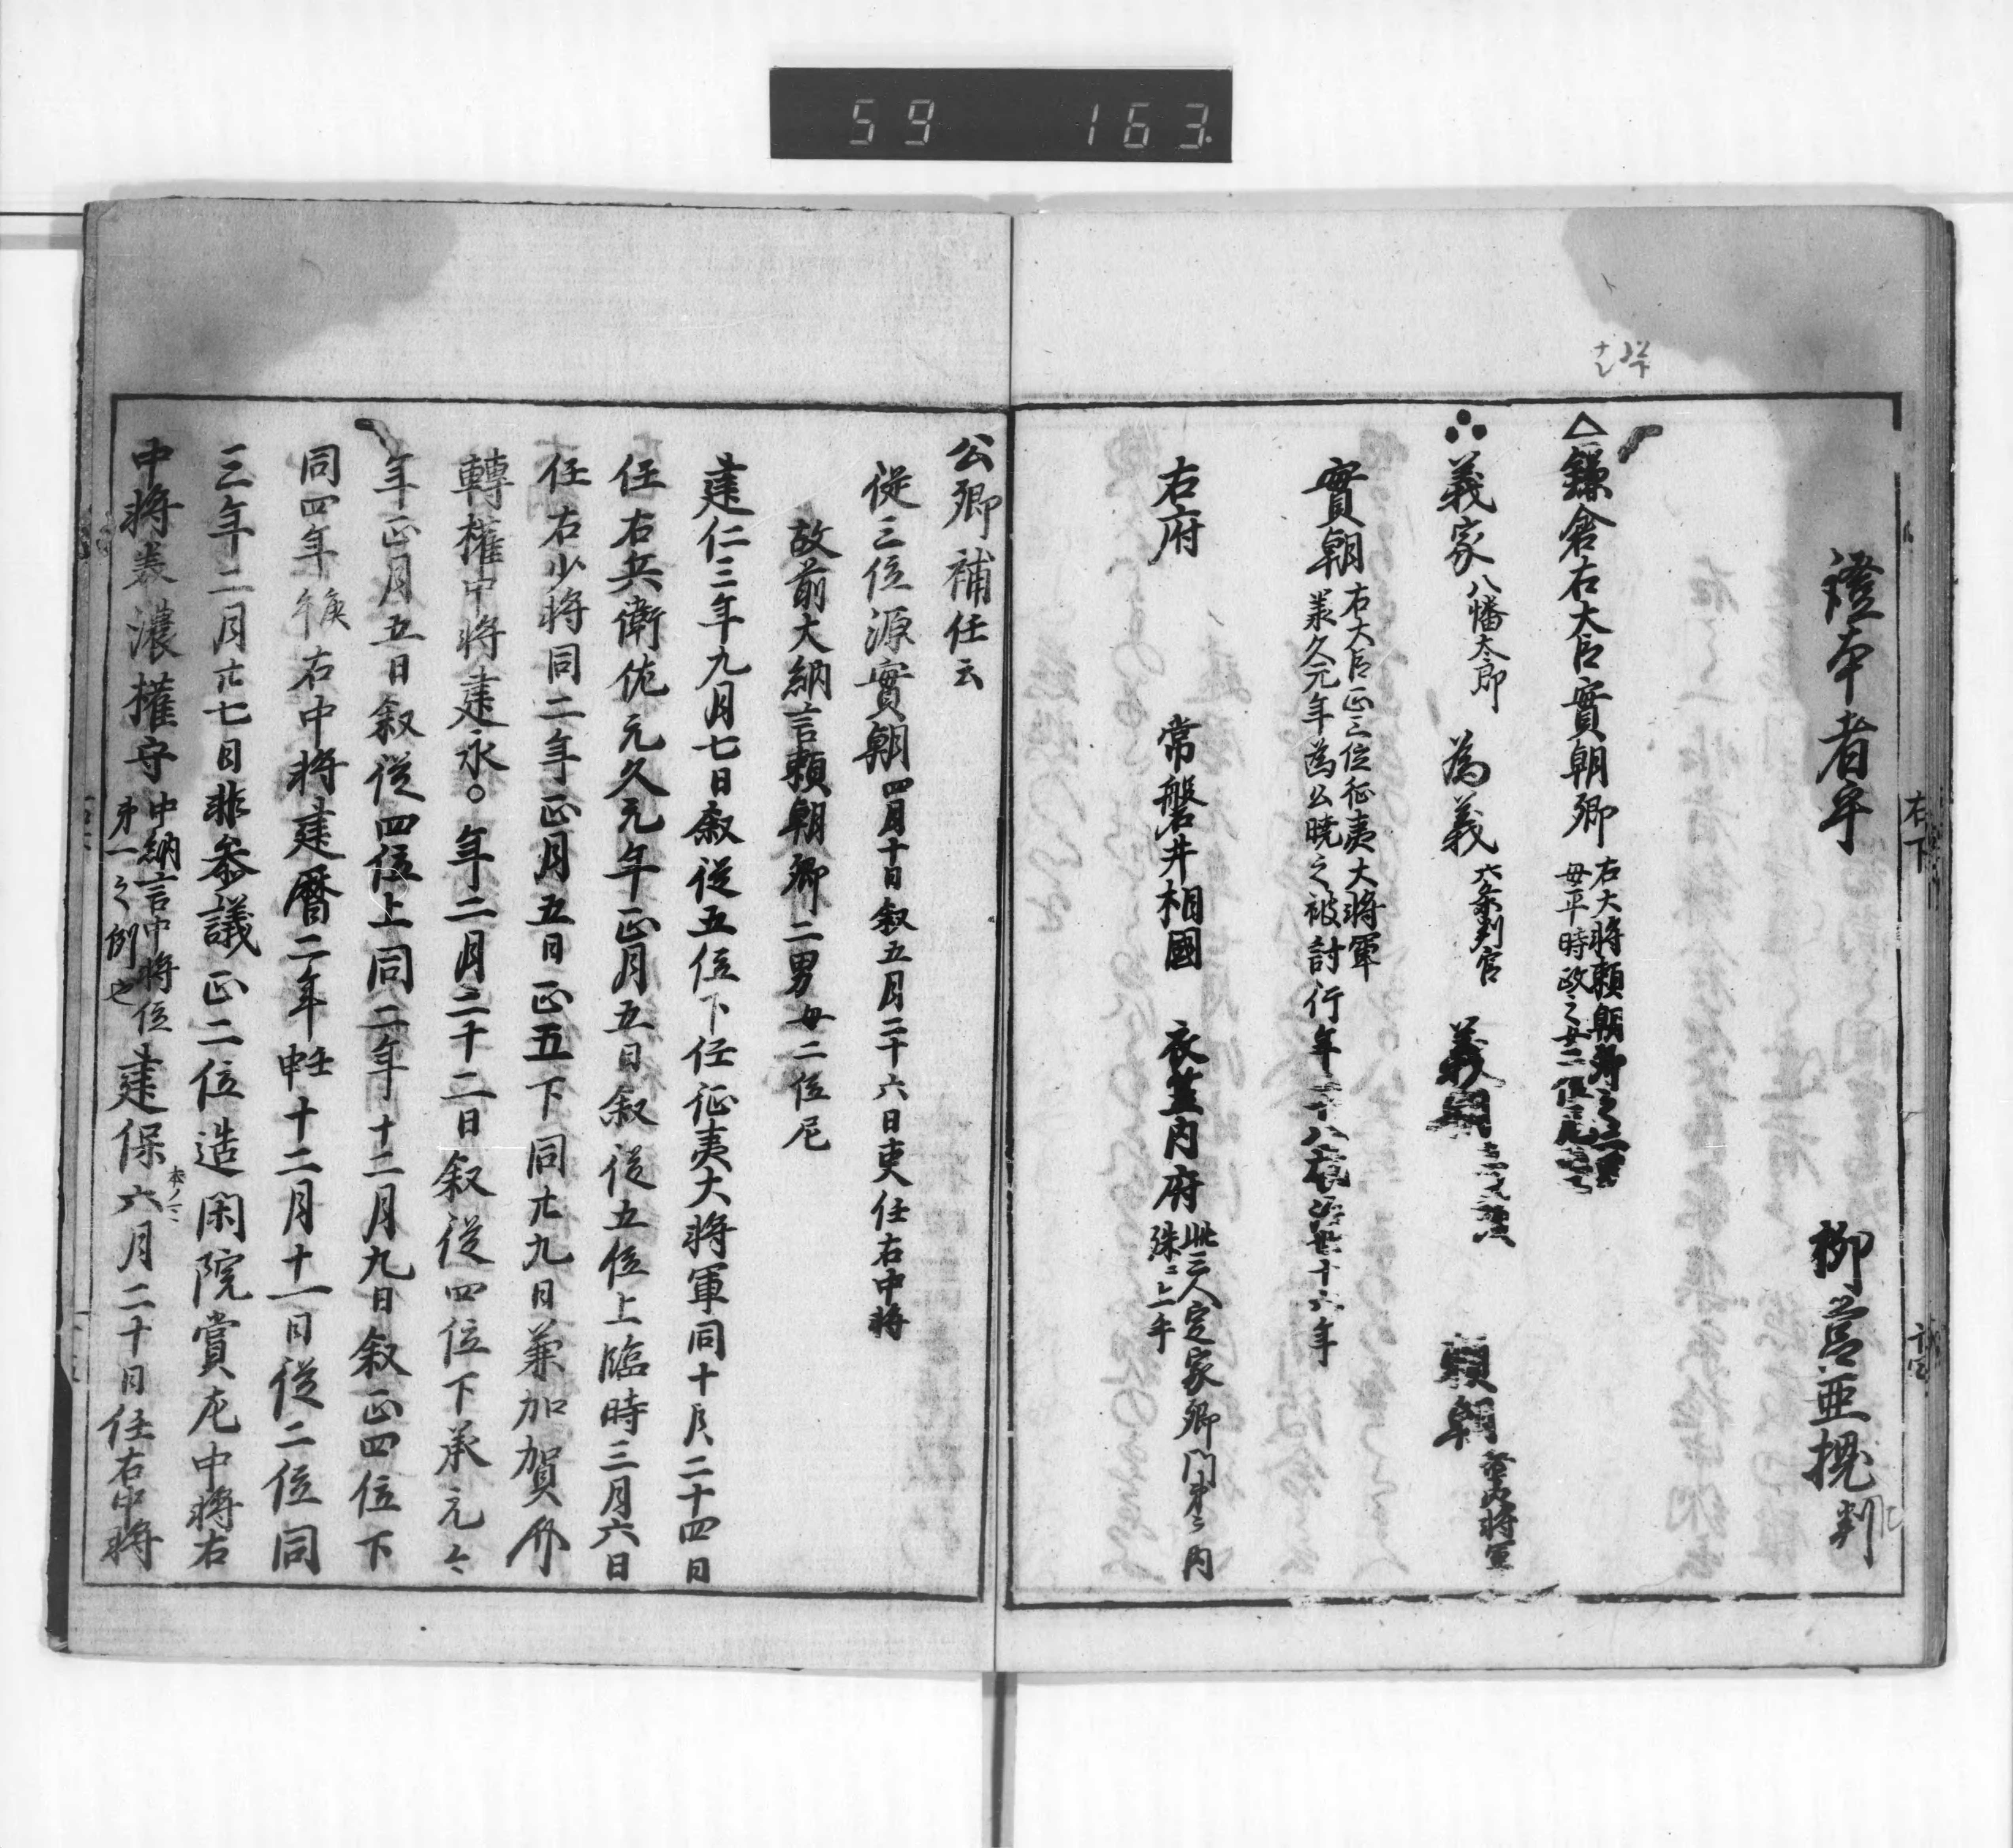 59 163.
證本者乎
柳営亜槐判
△鎌倉右大臣實朝卿
右大将頼朝卿之二男
母平時政之女二位尼
∴義家八幡太郎 為義六条判官 義朝 頼朝
實朝
右大臣正二位征夷大将軍
義久元年為公暁之被討行年二十八
右府 常磐井相國 衣笠内府
此三人定家卿門弟之内
殊ニ上手
公卿補任云
従三位源實朝四月十日叙五月二十六日更任右中将
故前大納言頼朝卿二男母二位尼
建仁三年九月七日叙従五位下任征夷大将軍同十月二十四日
任右兵衛佐元久元年正月五日叙従五位上臨時三月六日
任右少将同二年正月五日正五下同廿九日兼加賀介
轉権中将建永〇年二月二十二日叙従四位下承元々
年正月五日叙従四位上同二年十二月九日叙正四位下
同四年庚午右中将建暦二年壬申十二月十一日従二位同
三年二月廿七日非参議正二位造閑院賞左中将右
中将美濃権守
中納言中将位
弟一之例也
建保六月二十日任右中将
本ノマヽ